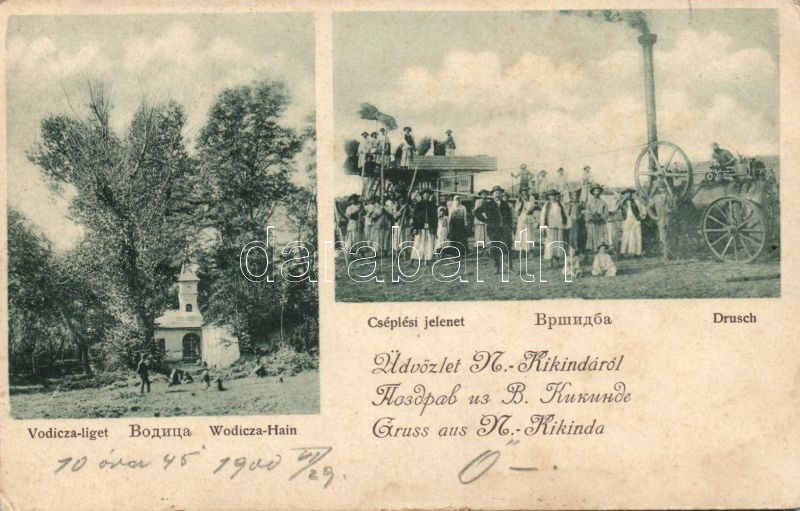 Cséplési jelenet Вршидба Drusch
Üdvözlet N.-Kikindáról
Поздрав из В. Кикинде
Gruss aus N.-Kikinda
Vodicza-liget Водица Wodicza-Hain
10 óra 45 1900 VI/29
Ö —
darabanth.com